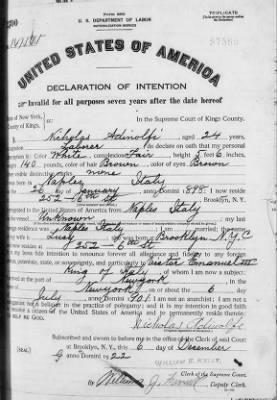 Form 2203
U. S. DEPARTMENT OF LABOR
NATURALIZATION SERVICE
TRIPLICATE
UNITED STATES OF AMERICA
DECLARATION OF INTENTION
Invalid for all purposes seven years after the date hereof
of New York,
County of Kings,
In the Supreme Court of Kings County.
Nicholas Adinolfi aged 24 years,
occupation Laborer do declare on oath that my personal
description is: Color White, complexion Fair, height 5 feet 6 inches,
weight 140 pounds, color of hair Brown color of eyes Brown
visible distinctive marks none
Naples Italy
26 day of January anno Domini 1898. I now reside
252 - 6th st Brooklyn, N. Y.
emigrated to the United States of America from Naples Italy
Unknown my last
residence was Naples Italy
born Brooklyn N.Y.C
252 6th st
my bona fide intention to renounce forever all allegiance and fidelity to any foreign
state, or sovereignty, and particularly to Victor Emanuel III
King of Italy of whom I am now a subject;
arrived at the port of New York
Newyork on or about the 6 day
July anno Domini 1901. I am not an anarchist; I am not a
believer in the practice of polygamy; and it is my intention in good faith
to become a citizen of the United States of America and to permanently reside therein:
SO HELP ME GOD.
Nicholas Adinolfi
Subscribed and sworn to before me in the office of the Clerk of said Court
[SEAL] at Brooklyn, N. Y., this 6 day of December
anno Domini 1922
WILLIAM E. KELLY,
Clerk of the Supreme Court.
By William J. Deputy Clerk.